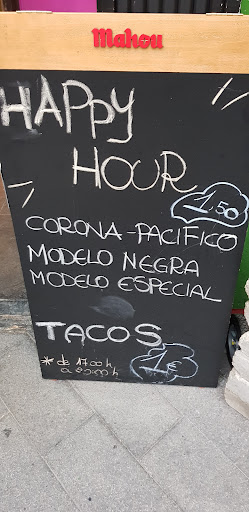 Mahou
HAPPY
HOUR
1,50
CORONA-PACIFICO
MODELO NEGRA
MODELO ESPECIAL
TACOS
1€
* de 17:00 h